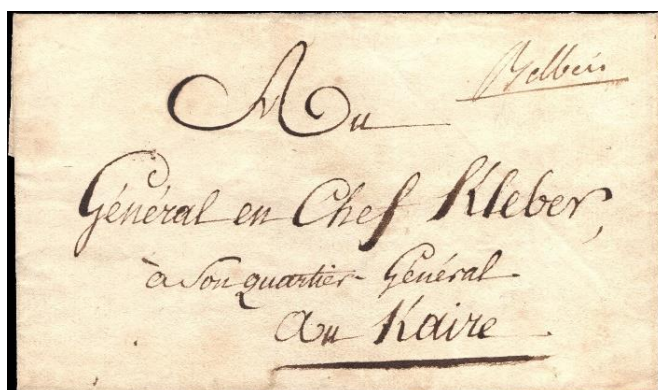 Belbeis
Au
Général en Chef Kleber,
à Son quartier-Général
Au Kaire